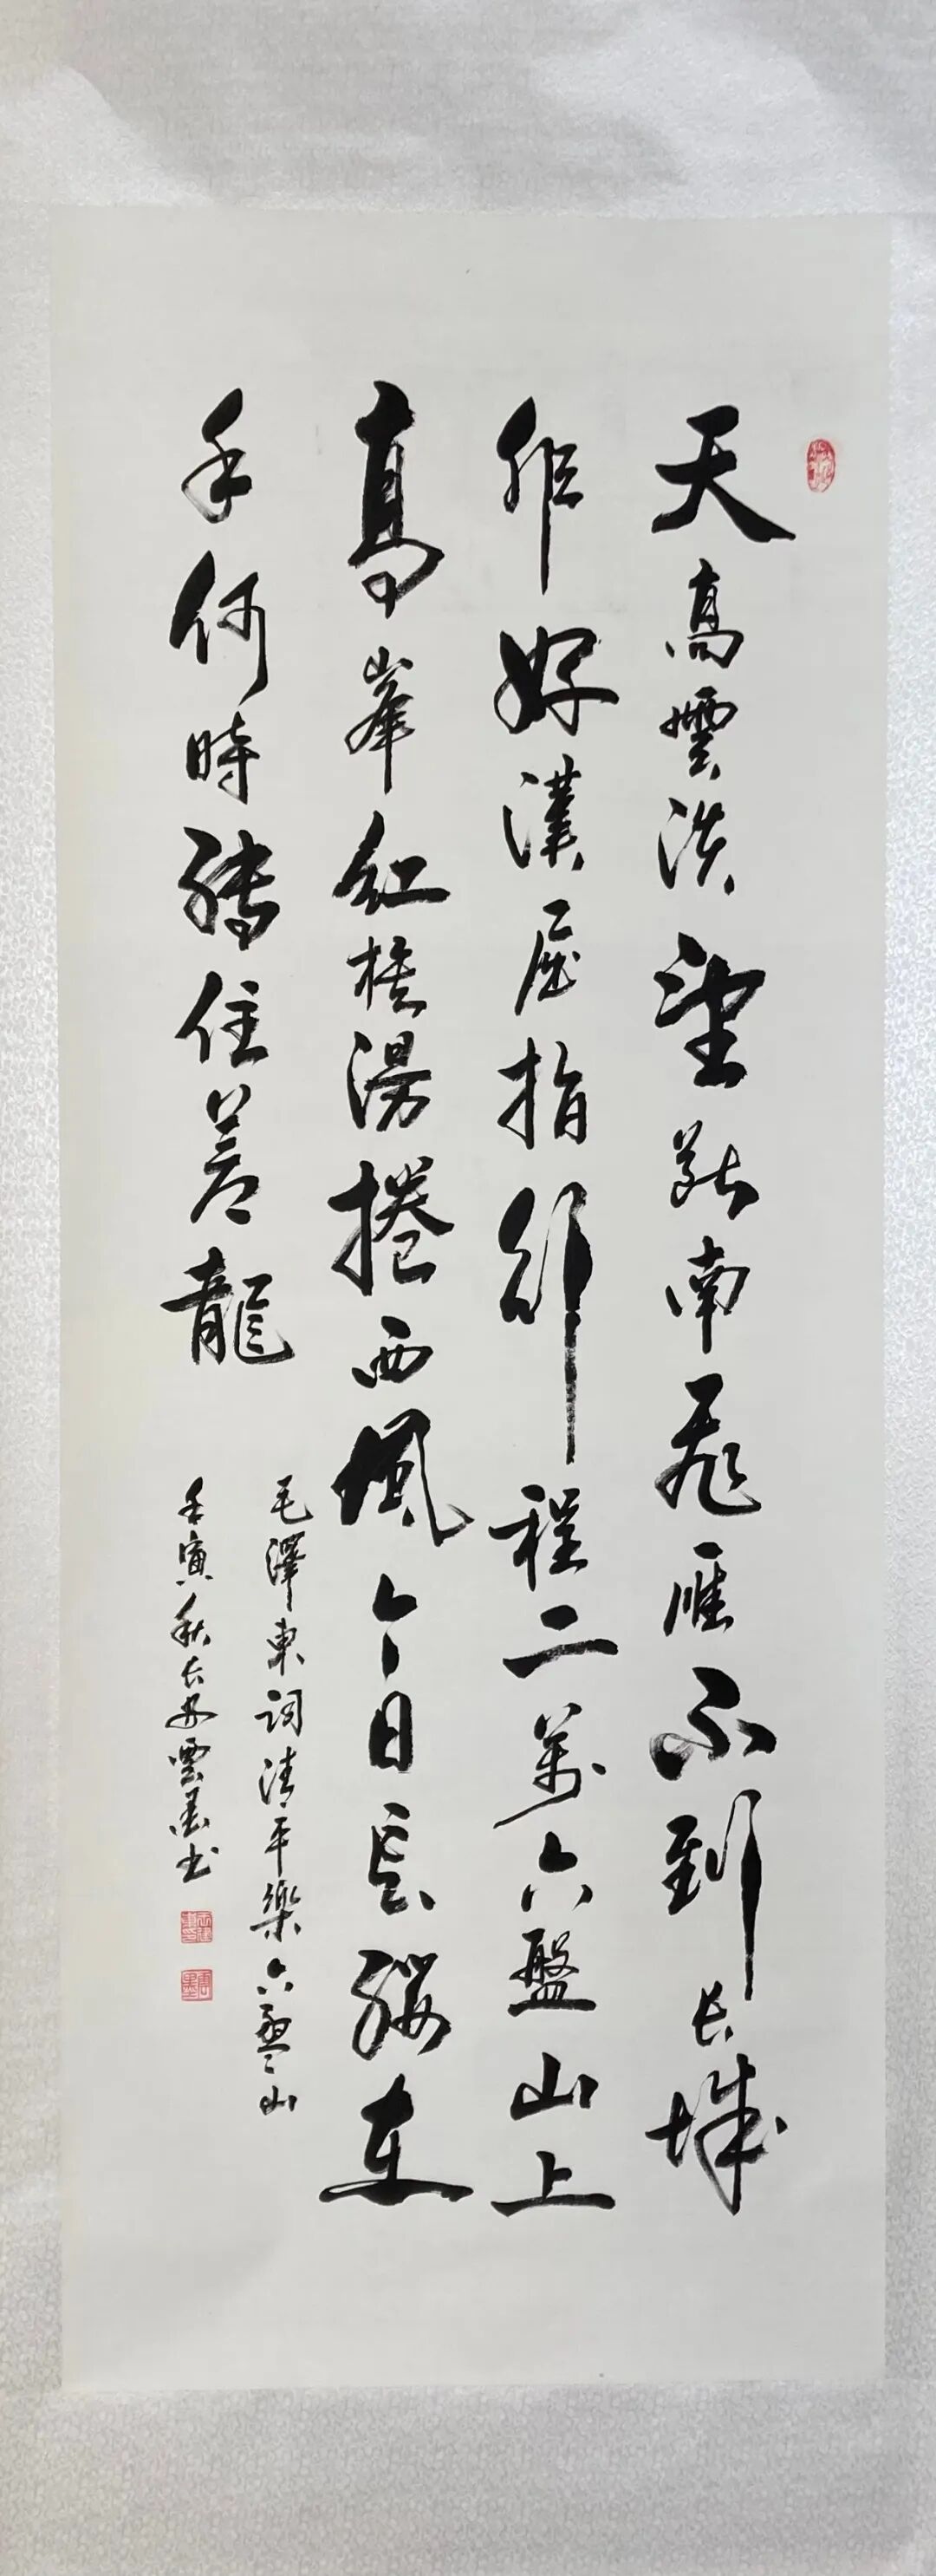 天高雲淡望斷南飛雁不到長城
非好漢屈指行程二萬六盤山上
高峯紅旗漫捲西風今日長纓在
手何時縛住蒼龍
毛澤東詞清平樂六盤山
壬寅秋長安雲墨书